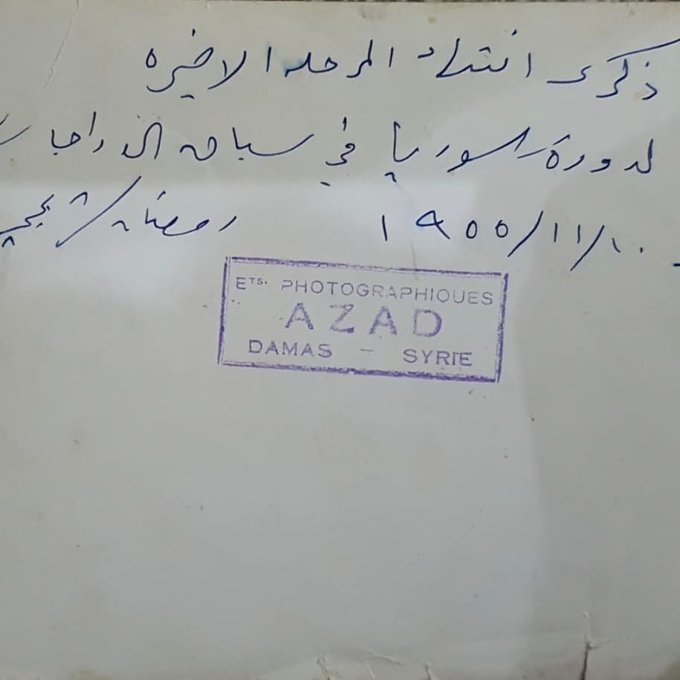 ذكرى انتهاء المرحله الاخيره
لدورة سوريا في سباق الدراجات
١٩٥٥/١١/١٠ رمضان
Ets. PHOTOGRAPHIQUES
AZAD
DAMAS - SYRIE